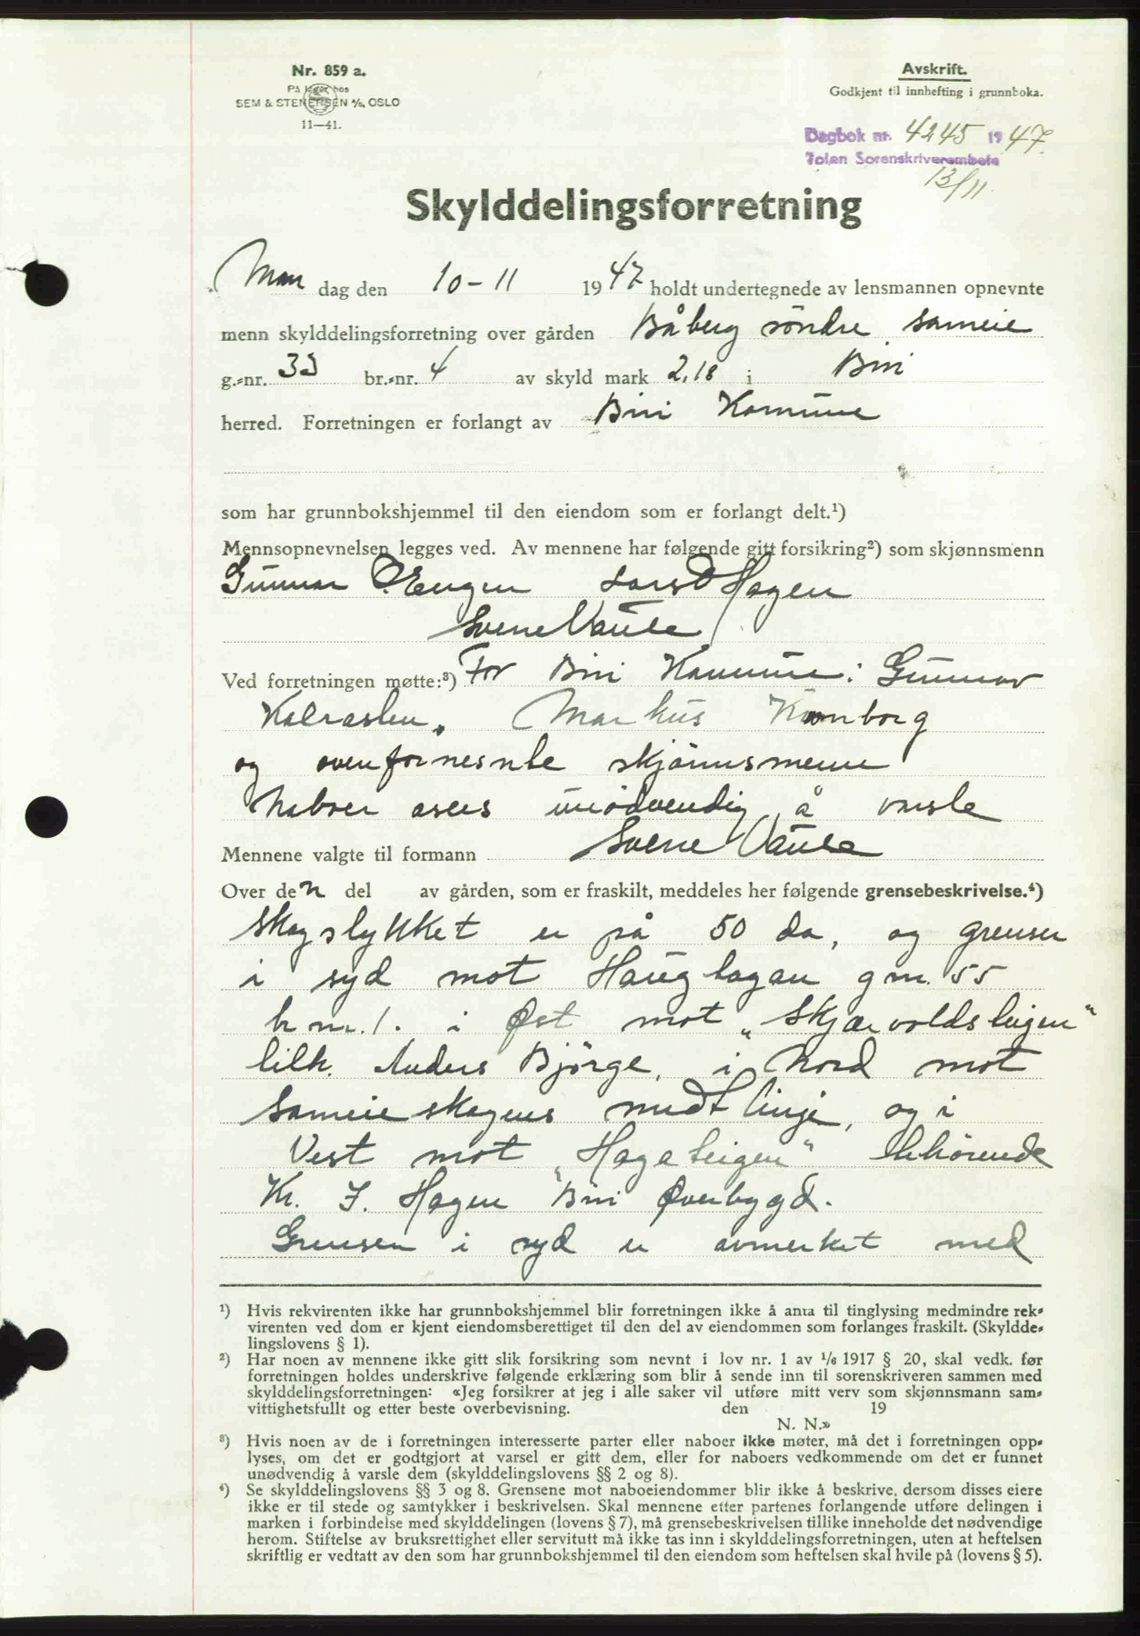 Nr. 859 a.
På lager hos
SEM & STENERSEN A/S, OSLO
11—41.
Avskrift.
Godkjent til innhefting i grunnboka.
Dagbok nr. 4245 1947.
Toten Sorenskriverembete
13/11.
Skylddelingsforretning
Man dag den 10-11 1947 holdt undertegnede av lensmannen opnevnte
menn skylddelingsforretning over gården Båberg söndre sameie
g.-nr. 33 br.-nr. 4 av skyld mark 2,18 i Biri
herred. Forretningen er forlangt av Biri Komune
som har grunnbokshjemmel til den eiendom som er forlangt delt.¹)
Mennsopnevnelsen legges ved. Av mennene har følgende gitt forsikring²) som skjønnsmenn
Gunnar Engen Lars Hagen
Svene Vaule
Ved forretningen møtte:³) For Biri Kommune: Gunnar
Markus
og ovenfornevnte skjönnsmenn
Naboer unödvendig å varsle
Mennene valgte til formann Svene Vaule
Over den del av gården, som er fraskilt, meddeles her følgende grensebeskrivelse.⁴)
Skogstykket er på 50 da, og grenser
i syd mot Hauglagan g nr. 55
br nr. 1. i Øst mot „Skjærvoldsleigen“
tilh. Anders Bjørge, i Nord mot
Sameieskogens midtlinje, og i
Vest mot „Hageleigen“ tilhørende
Kr. J. Hagen Biri Øverbygd.
Grensen i syd er avmerket med
¹) Hvis rekvirenten ikke har grunnbokshjemmel blir forretningen ikke å anta til tinglysing medmindre rek-
virenten ved dom er kjent eiendomsberettiget til den del av eiendommen som forlanges fraskilt. (Skyldde-
lingslovens § 1).
²) Har noen av mennene ikke gitt slik forsikring som nevnt i lov nr. 1 av 1/6 1917 § 20, skal vedk. før
forretningen holdes underskrive følgende erklæring som blir å sende inn til sorenskriveren sammen med
skylddelingsforretningen: «Jeg forsikrer at jeg i alle saker vil utføre mitt verv som skjønnsmann sam-
vittighetsfullt og etter beste overbevisning. den 19
N. N.»
³) Hvis noen av de i forretningen interesserte parter eller naboer ikke møter, må det i forretningen opp-
lyses, om det er godtgjort at varsel er gitt dem, eller for naboers vedkommende om det er funnet
unødvendig å varsle dem (skylddelingslovens §§ 2 og 8).
⁴) Se skylddelingslovens §§ 3 og 8. Grensene mot naboeiendommer blir ikke å beskrive, dersom disses eiere
ikke er til stede og samtykker i beskrivelsen. Skal mennene etter partenes forlangende utføre delingen i
marken i forbindelse med skylddelingen (lovens § 7), må grensebeskrivelsen tillike inneholde det nødvendige
herom. Stiftelse av bruksrettighet eller servitutt må ikke tas inn i skylddelingsforretningen, uten at heftelsen
skriftlig er vedtatt av den som har grunnbokshjemmel til den eiendom som heftelsen skal hvile på (lovens § 5).